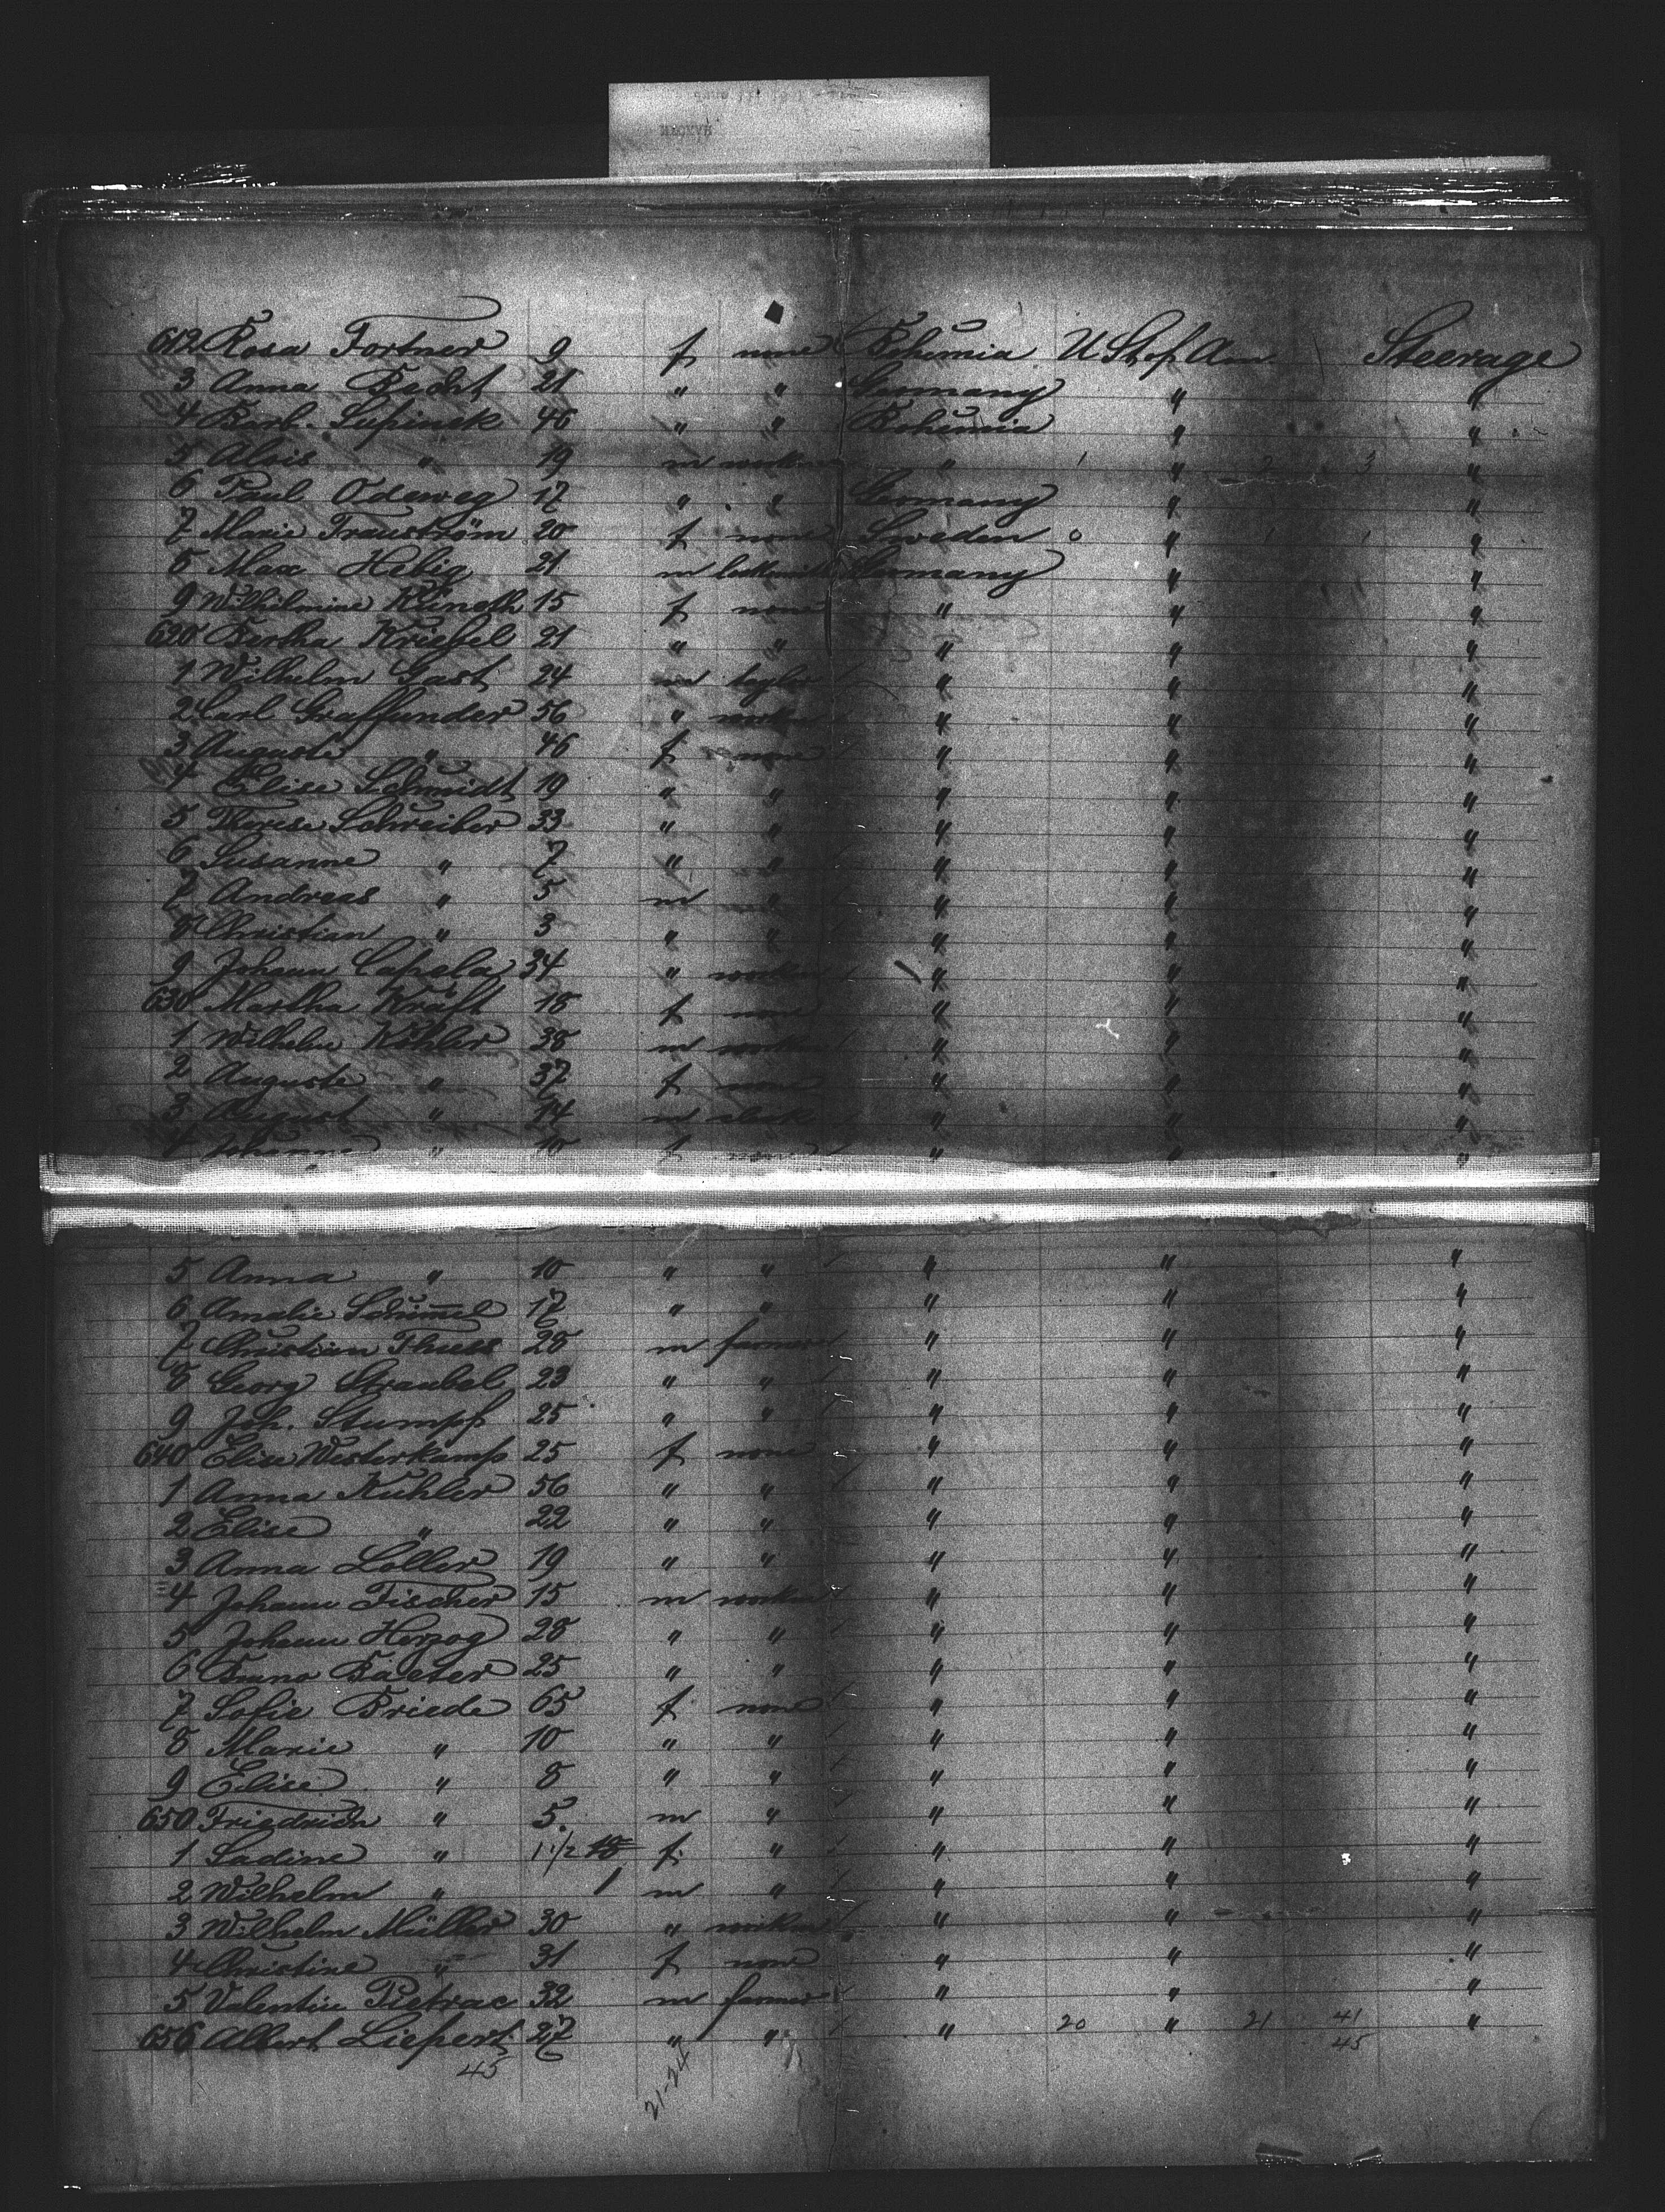 612 Rosa Fortner 9 f none Bohemia U St of Am Steerage
3 Anna Becht 21 " " Germany " "
4 Barb. Lupinek 46 " " Bohemia " "
5 Alois " 19 m workm " 1 " 2 3 "
6 Paul Odeweg 17 " " Germany " "
7 Marie Trauström 20 f none Sweden 0 " 1 1 "
8 Max Helbig 21 m Germany " "
9 Wilhelmine Küneth 15 f none " " "
620 Bertha Kriesel 21 " " " " "
1 Wilhelm Gast 24 m taylor " " "
2 Carl Graffunder 56 " workm " " "
3 Auguste " 46 f none " " "
4 Elise Schmidt 19 " " " " "
5 Therese Schreiber 33 " " " " "
6 Susanne " 7 " " " " "
7 Andreas " 5 m " " " "
8 Christian " 3 " " " " "
9 Johann Capela 34 " workm " " "
630 Martha Kraft 18 f none " " "
1 Wilhelm Köhler 38 m workm " " "
2 Auguste " 37 f none " " "
3 August " 14 m clerk " " "
4 Johanne " 10 f none " " "
5 Anna " 10 " " " " "
6 Amalie Schimmel 17 " " " " "
7 Christian Thuess 28 m farmer " " "
8 Georg Straubel 23 " " " " "
9 Joh. Stumpf 25 " " " " "
640 Elise Westerkamp 25 f none " " "
1 Anna Kühler 56 " " " " "
2 Elise " 22 " " " " "
3 Anna Loller 19 " " " " "
4 Johann Fischer 15 m workm " " "
5 Johann Herzog 28 " " " " "
6 Bruno Baeter 25 " " " " "
7 Sofie Briede 65 f none " " "
8 Marie " 10 " " " " "
9 Elise " 8 " " " " "
650 Friedrich " 5. m " " " "
1 Sadine " 1 1/2 f " " " "
2 Wilhelm " 1 m " " " "
3 Wilhelm Müller 30 " workm " " "
4 Christine " 31 f none " " "
5 Valentin Pietrac 32 m farmer " " "
656 Albert Liepert 27 " " " 20 " 21 41 "
45
45
21-24